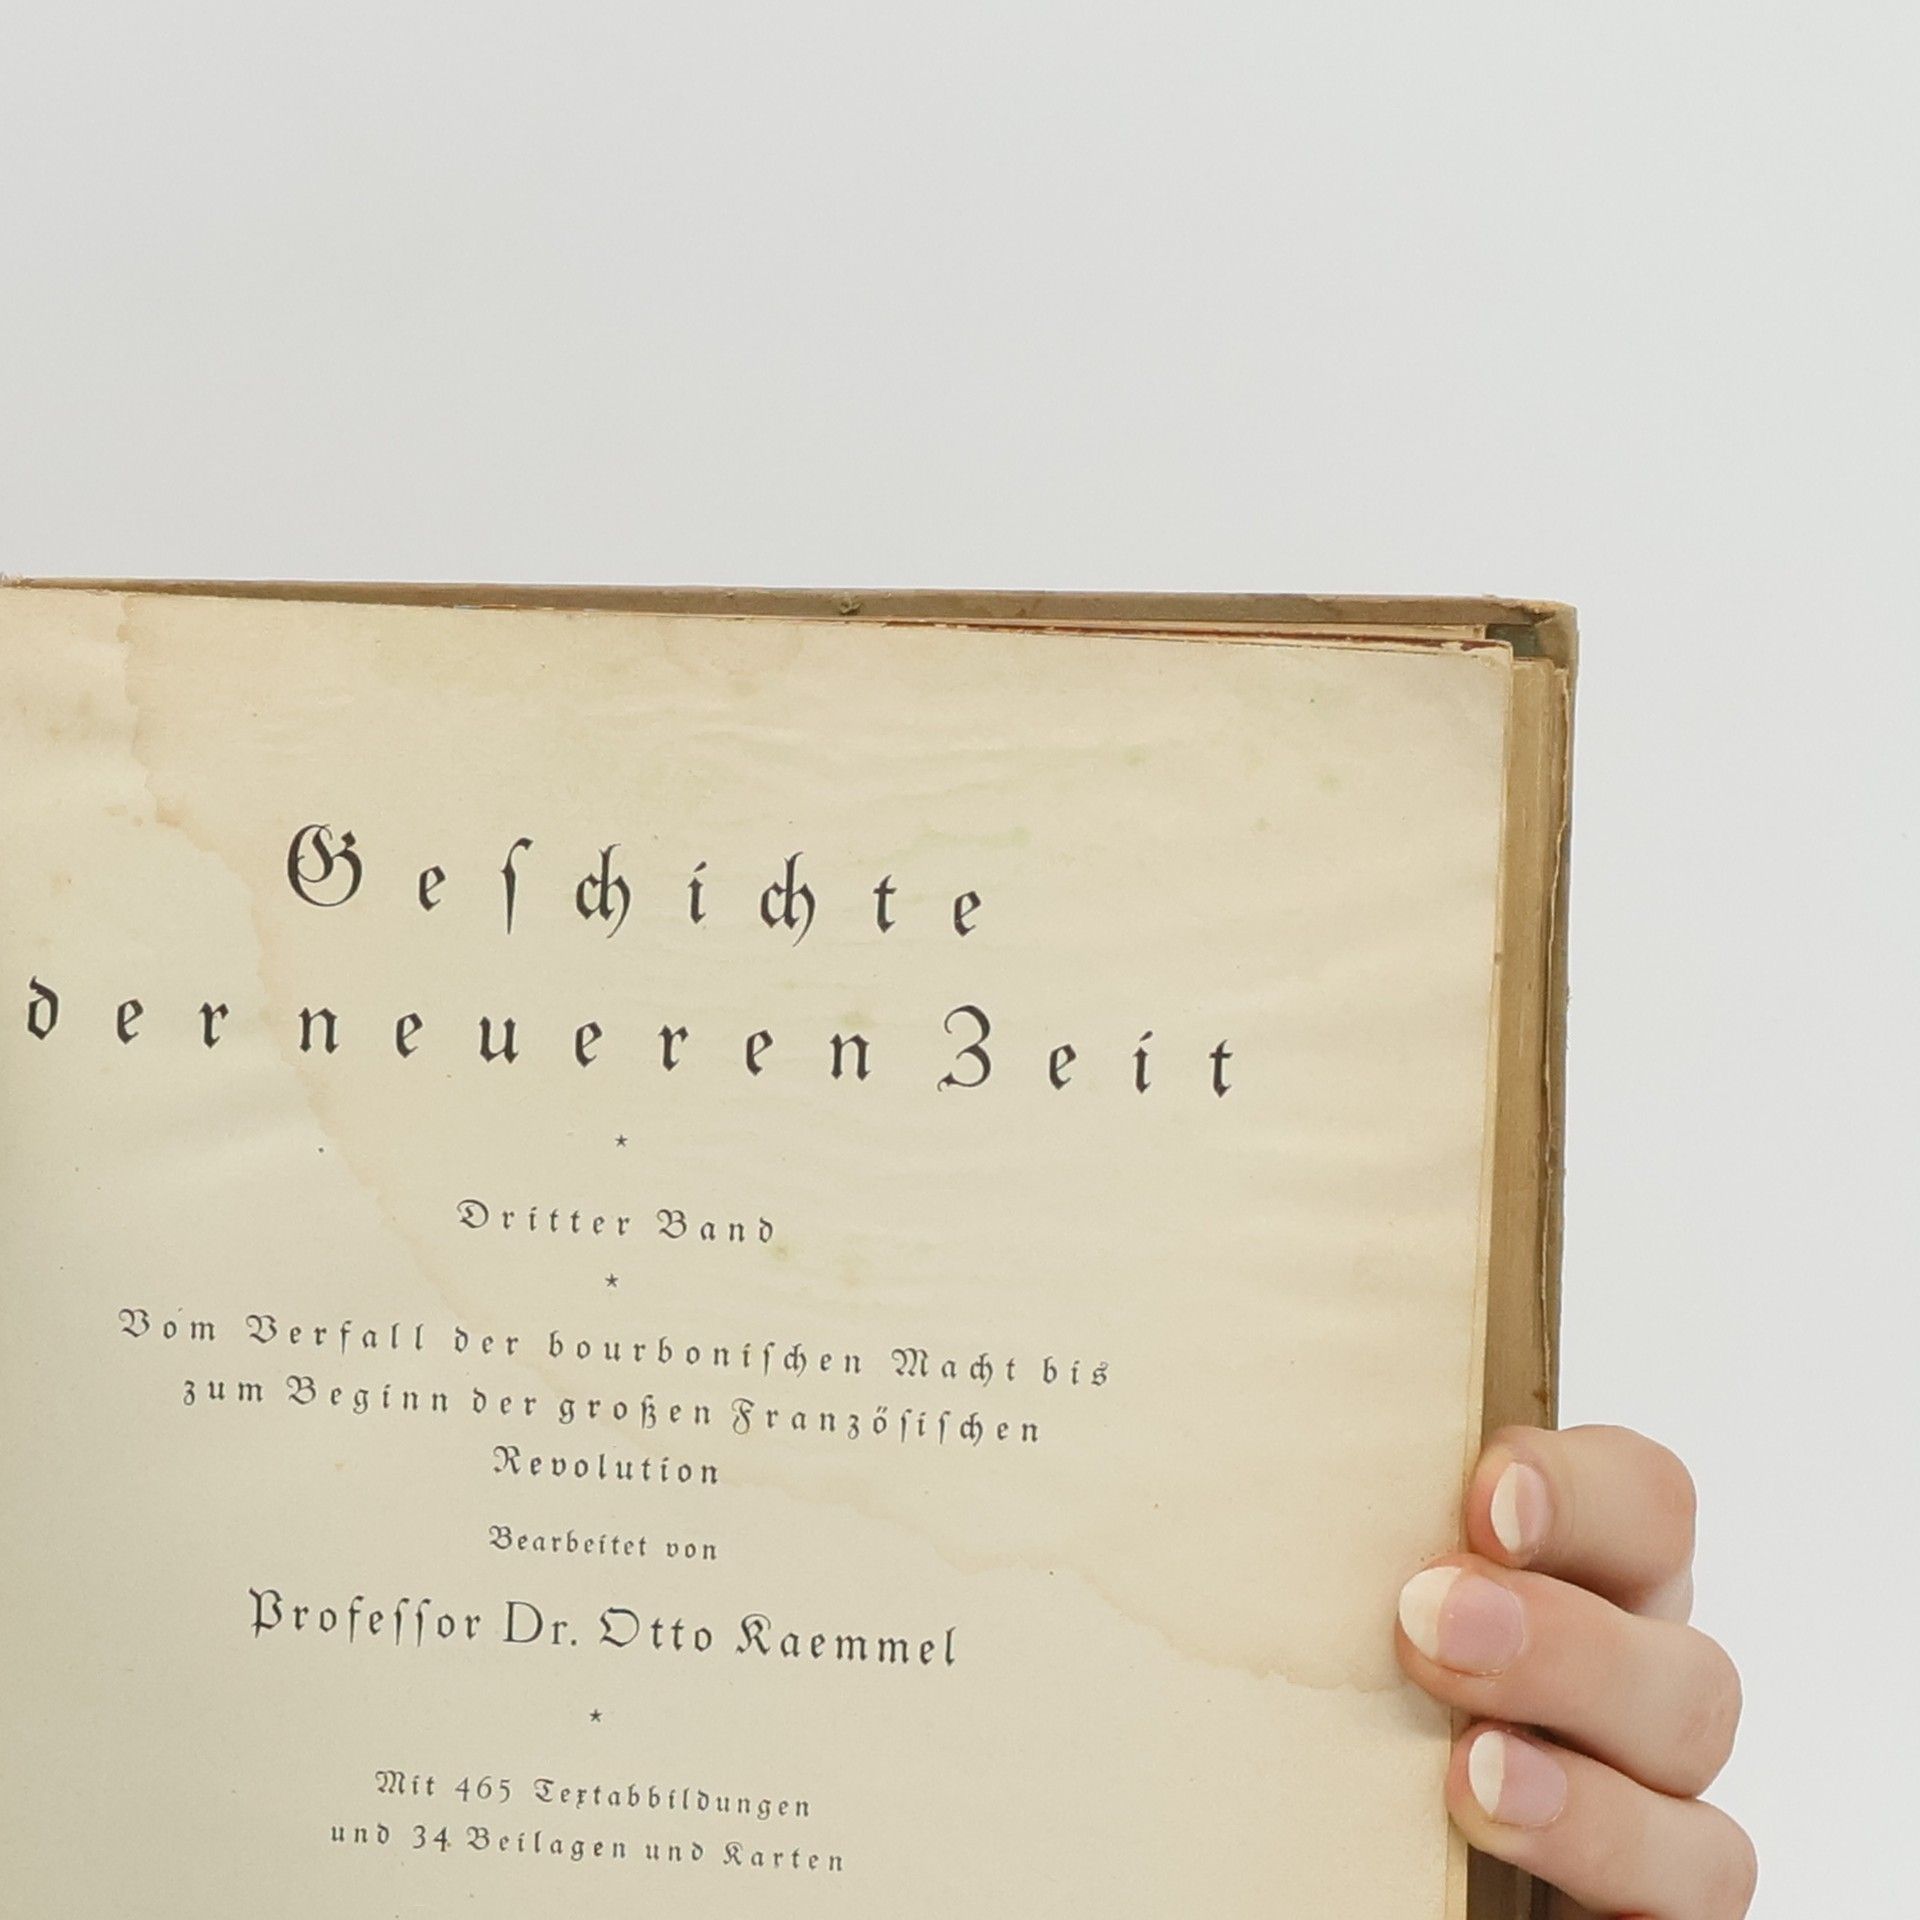 Geſchichte
der neueren Zeit
*
Dritter Band
*
Vom Verfall der bourboniſchen Macht bis
zum Beginn der großen Franzöſiſchen
Revolution
Bearbeitet von
Profeſſor Dr. Otto Kaemmel
*
Mit 465 Textabbildungen
und 34 Beilagen und Karten